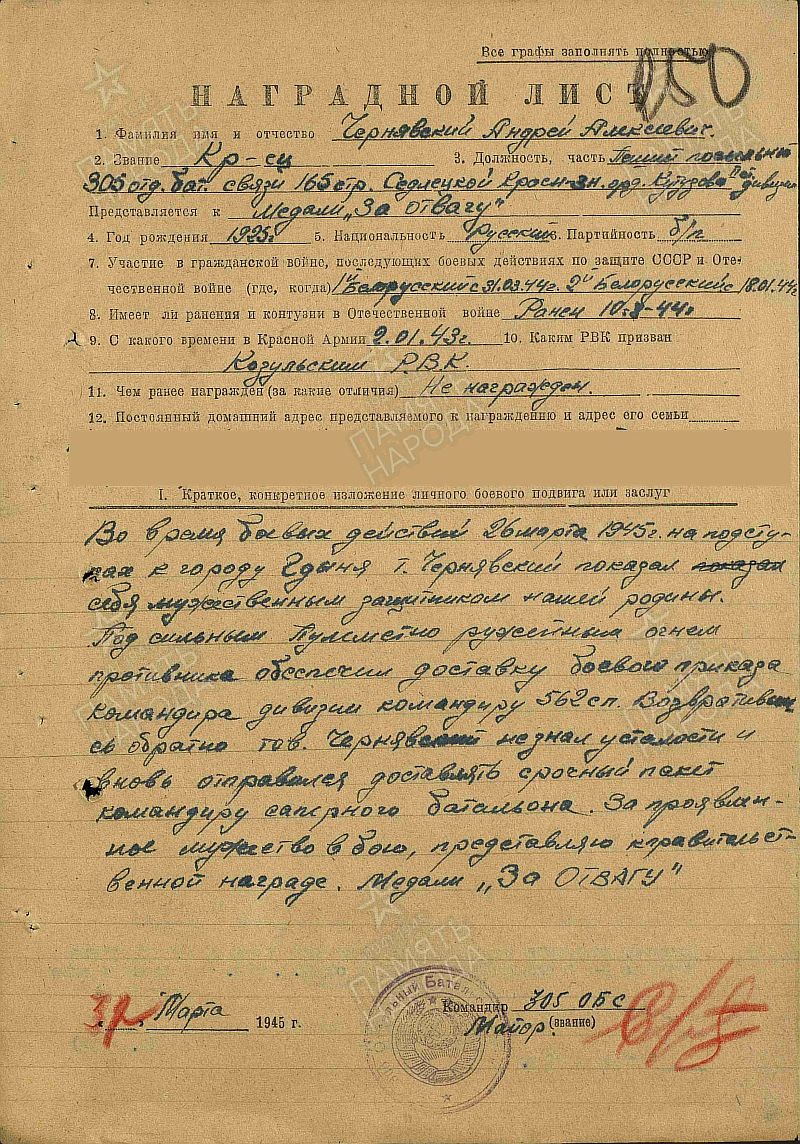 Все графы заполнять полностью
250
НАГРАДНОЙ ЛИСТ
1. Фамилия имя и отчество Чернявский Андрей Алексеевич.
2. Звание Кр-ец 3. Должность, часть Пеший посыльный
305 отд. бат. связи 165 стр. Седлецкой Красн-зн. орд. Кутузова дивизии
Представляется к Медали „За отвагу"
4. Год рождения 1923г 5. Национальность Русский 6. Партийность б/п
7. Участие в гражданской войне, последующих боевых действиях по защите СССР и Оте-
чественной войне (где, когда) 1й Белорусский с 31.03.44г. 2й Белорусский с 18.01.44г
8. Имеет ли ранения и контузии в Отечественной войне Ранен 44г
9. С какого времени в Красной Армии 2.01.43г. 10. Каким РВК призван
Козульским Р.В.К.
11. Чем ранее награжден (за какие отличия) Не награжден.
12. Постоянный домашний адрес представляемого к награждению и адрес его семьи
I. Краткое, конкретное изложение личного боевого подвига или заслуг
Во время боевых действий 26 марта 1945г. на подсту-
пах к городу Гдыня т. Чернявский показал показал
себя мужественным защитником нашей родины.
Под сильным Пулеметно ружейным огнем
противника обеспечил доставку боевого приказа
командира дивизии командиру 562 сп. Возвративши
сь обратно тов. Чернявский незнал усталости и
вновь отправился доставлять срочный пакет
командиру саперного батальона. За проявлен-
ное мужество в бою, представляю к правительст-
венной награде. Медали „За ОТВАГУ"
Марта 1945 г.
Командир 305 ОБС
Майор. (звание)
ПАМЯТЬ НАРОДА